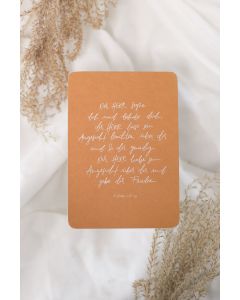 Der HERR segne
dich und behüte dich.
der HERR lasse sein
Angesicht leuchten über dir
und sei dir gnädig.
Der HERR hebe sein
Angesicht über dich und
gebe dir Frieden.